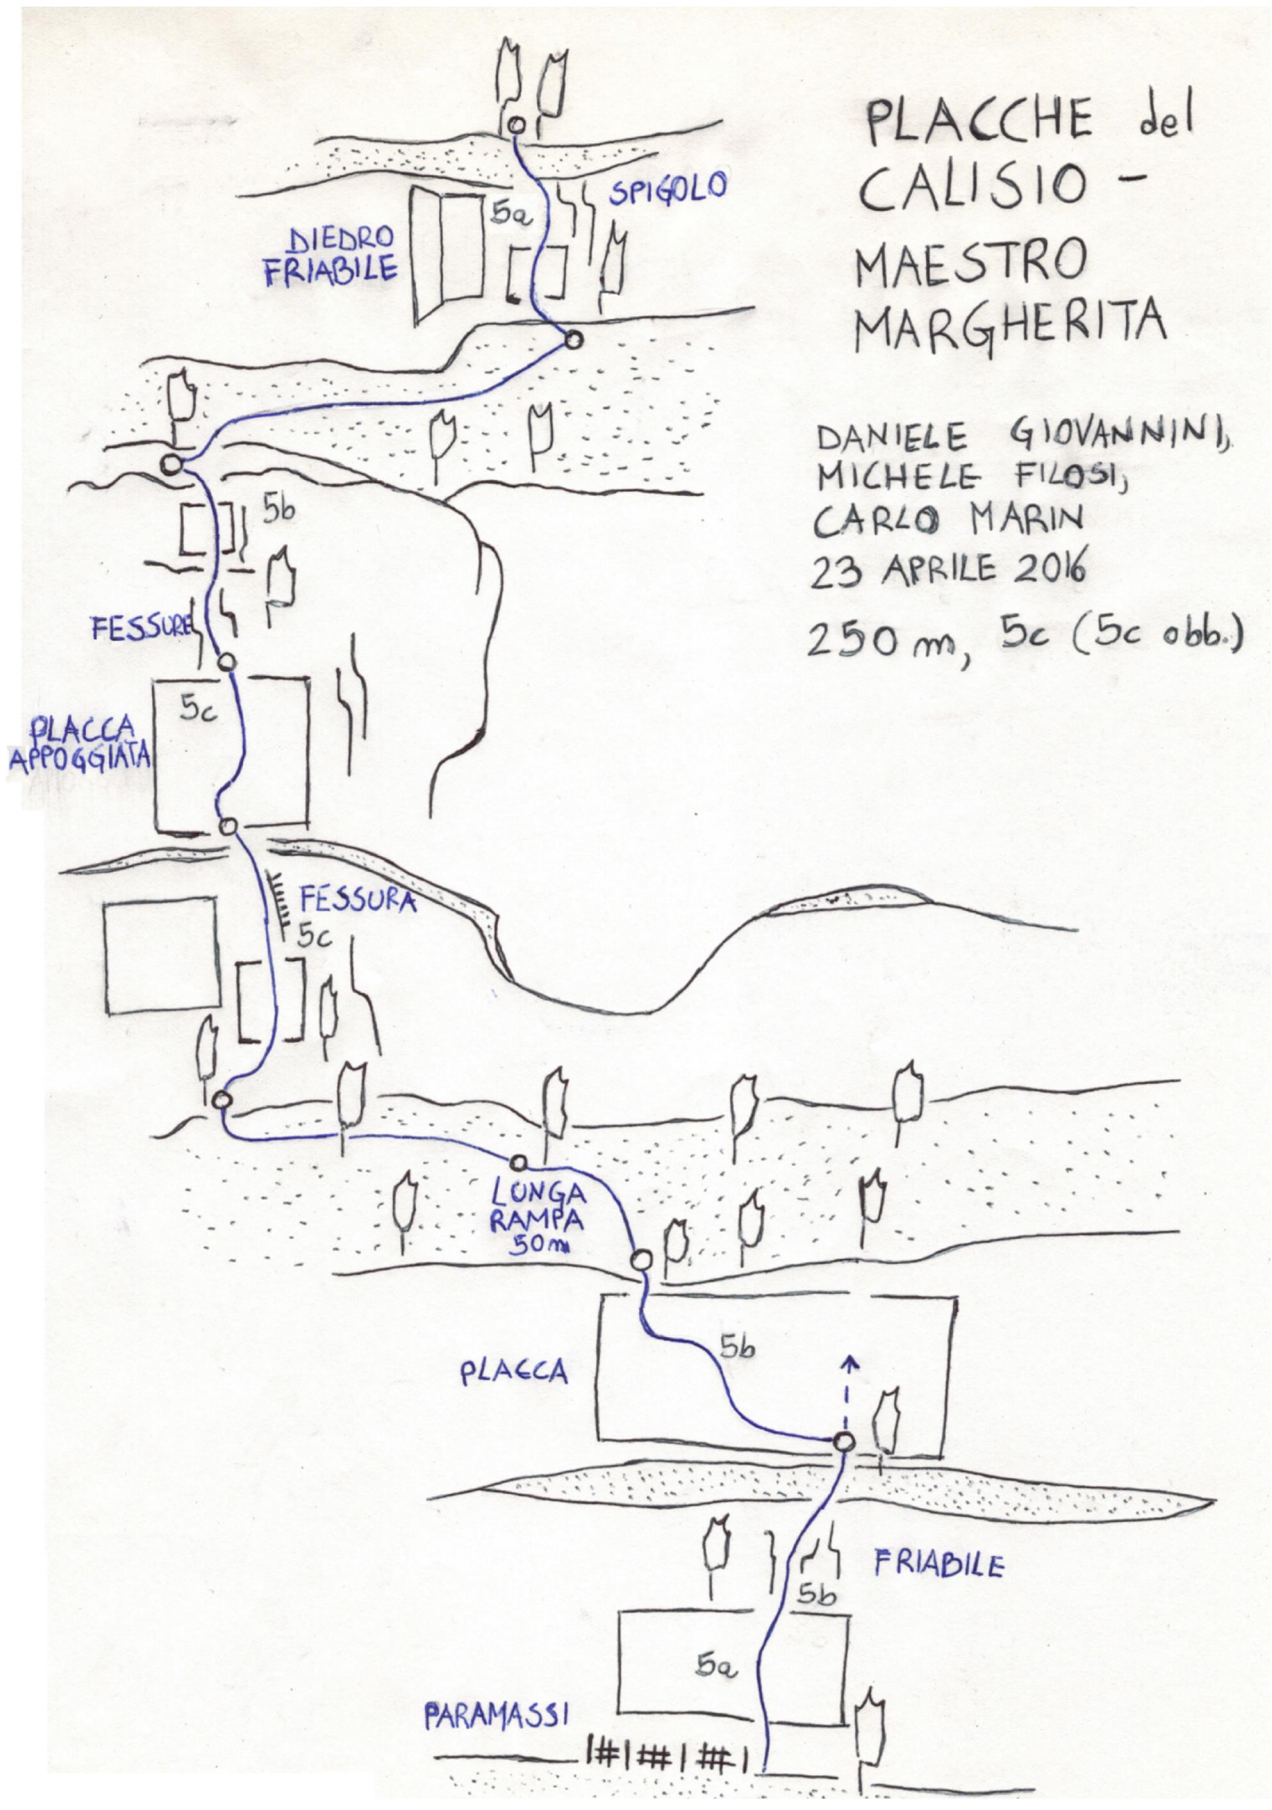 PLACCHE del
CALISIO -
MAESTRO
MARGHERITA
DANIELE GIOVANNINI,
MICHELE FILOSI,
CARLO MARIN
23 APRILE 2016
250 m, 5c (5c obb.)
SPIGOLO
5a
DIEDRO
FRIABILE
5b
FESSURE
5c
PLACCA
APPOGGIATA
FESSURA
5c
LUNGA
RAMPA
50m
5b
PLACCA
FRIABILE
5b
5a
PARAMASSI